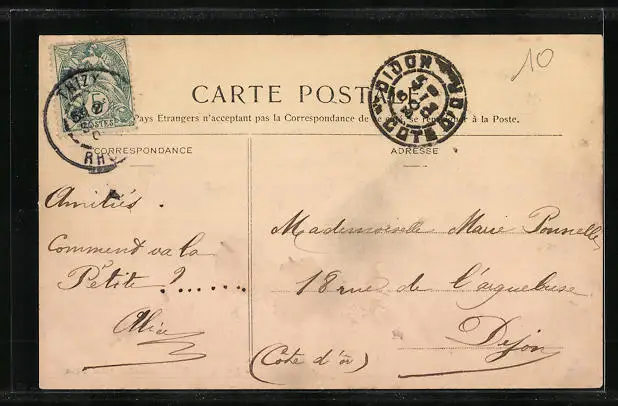 10
CARTE POSTALE
Pays Etrangers n'acceptant pas la Correspondance se à la Poste.
CORRESPONDANCE
ADRESSE
POSTES
DIJON
COTE D'OR
Amitiés.
Comment va la
Petite ?.......
Alice
Mademoiselle Marie Ponnelle
18 rue de l'aiguebuse
Dijon
(Côte d'Or)